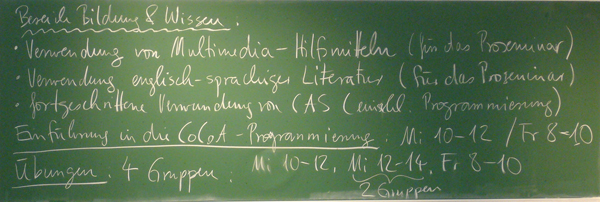 Bereich Bildung & Wissen.
• Verwendung von Multimedia-Hilfsmitteln (für das Proseminar)
• Verwendung englisch-sprachiger Literatur (für das Proseminar)
• fortgeschrittene Verwendung von CAS (einschl. Programmierung)
Einführung in die CoCoA-Programmierung. Mi 10-12 / Fr 8-10
Übungen. 4 Gruppen: Mi 10-12, Mi 12-14, Fr 8-10
2 Gruppen